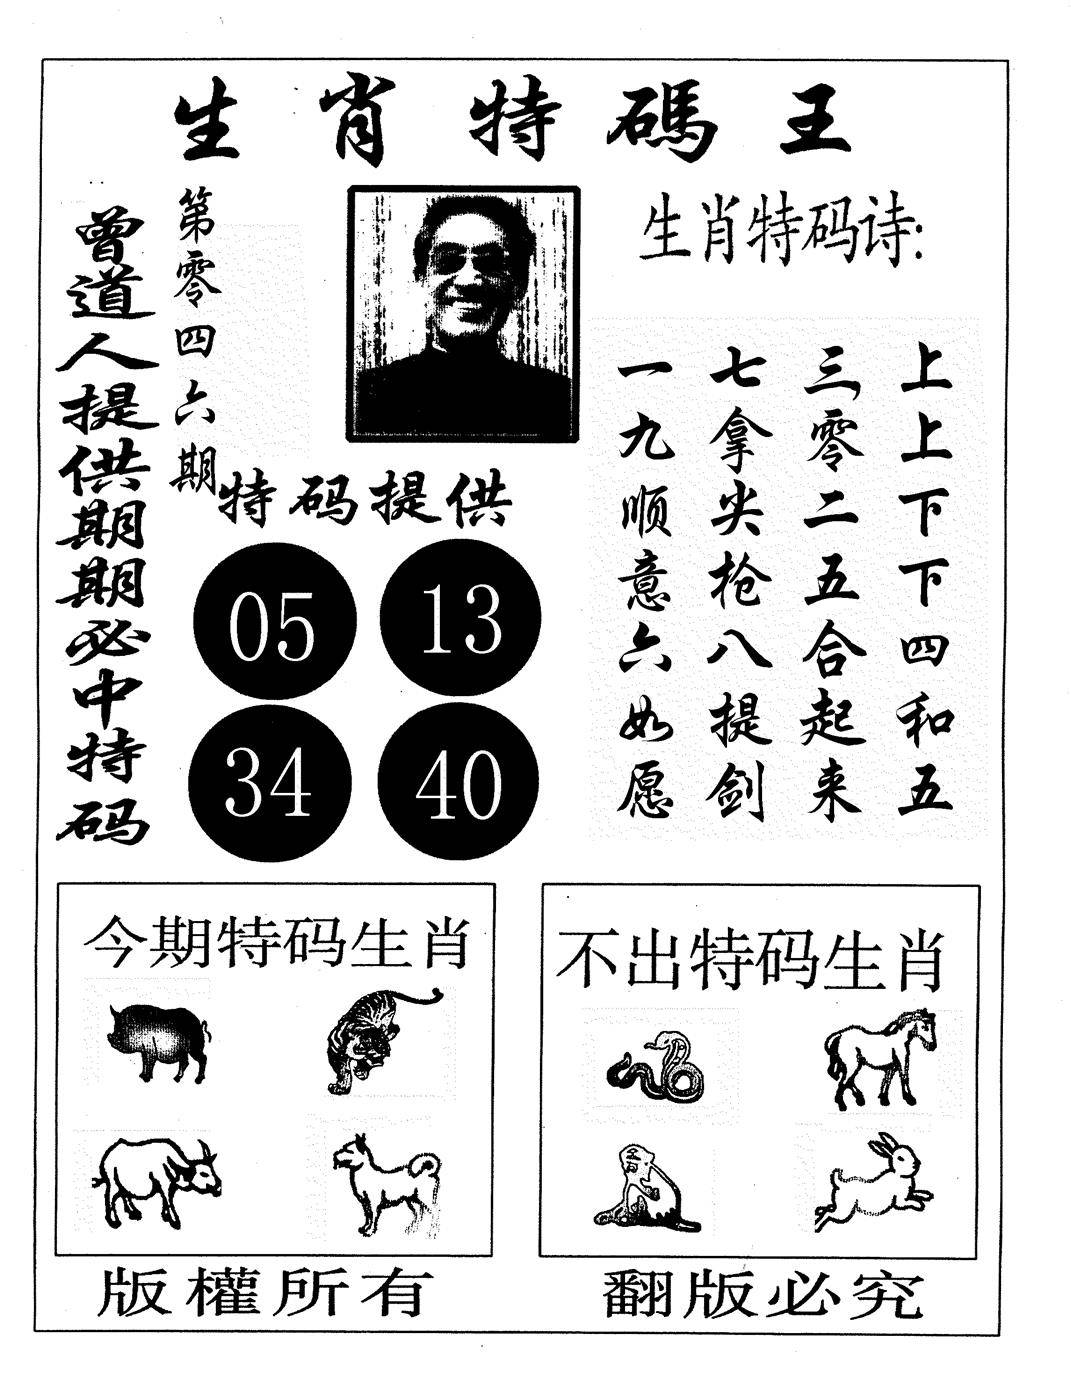 生肖特碼王
曾道人提供期期必中特码
第零四六期
生肖特码诗:
上上下下四和五
三零二五合起来
七拿尖枪八提剑
一九顺意六如愿
特码提供
05 13
34 40
今期特码生肖
不出特码生肖
版權所有
翻版必究